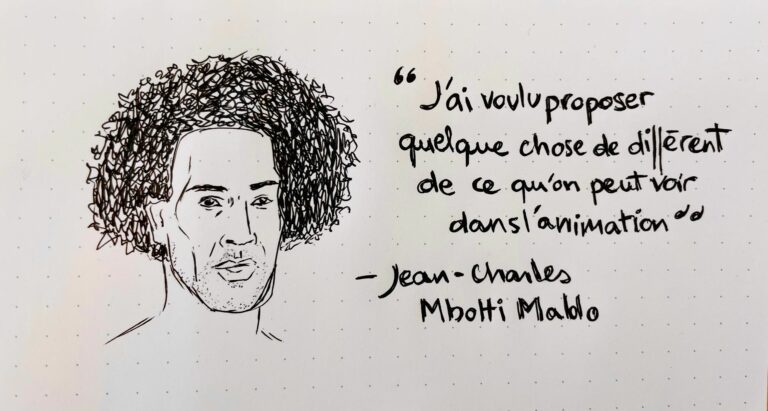 “ J'ai voulu proposer
quelque chose de différent
de ce qu'on peut voir
dans l'animation ”
- Jean-Charles
Mbotti Malolo